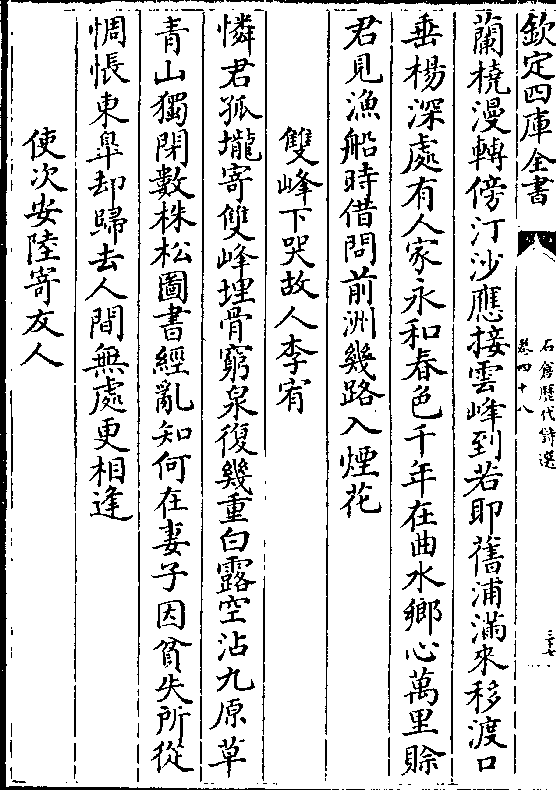 欽定四庫全書
石倉歷代詩選
卷四十八
三十七
蘭橈漫轉傍汀沙應接雲峰到若耶舊浦滿來移渡口
垂楊深處有人家永和春色千年在曲水鄉心萬里賒
君見漁船時借問前洲幾路入煙花
雙峰下哭故人李宥
憐君孤壠寄雙峰埋骨窮泉復幾重白露空沾九原草
青山獨閉數株松圖書經亂知何在妻子因貧失所從
惆悵東臯却歸去人間無處更相逢
使次安陸寄友人